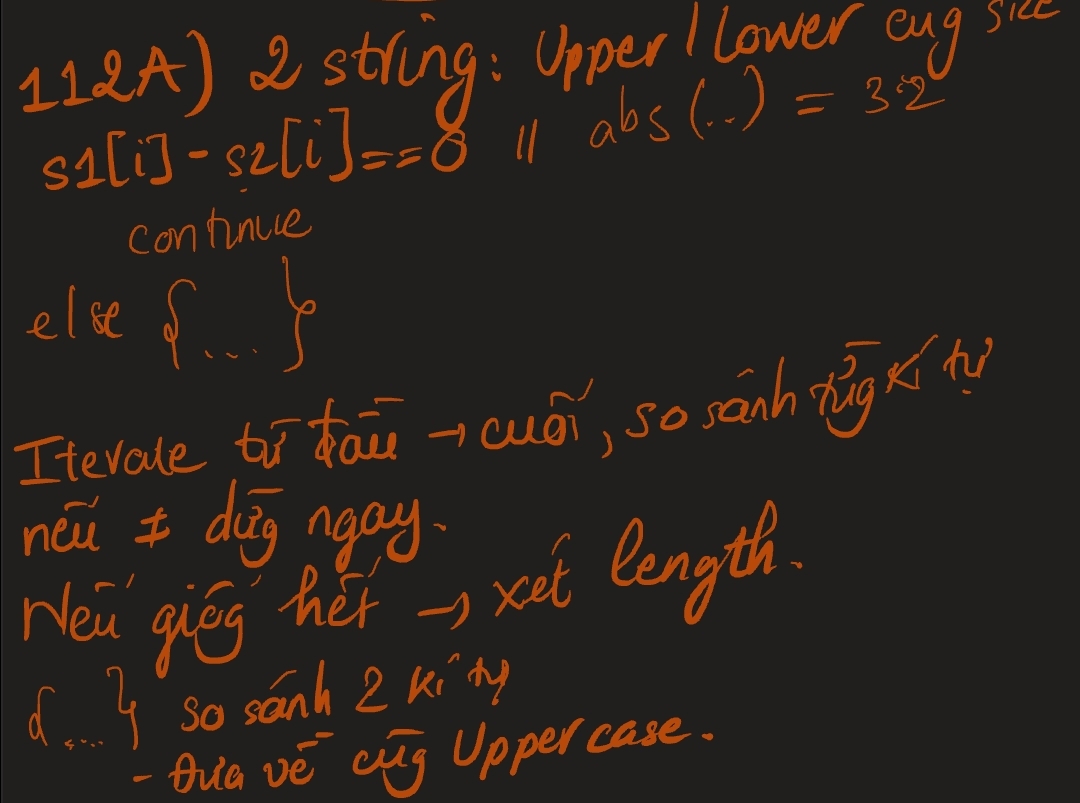 112A) 2 string: Upper / lower cùg size
s1[i] - s2[i] == 0 || abs(..) = 32
continue
else {...}
Iterate từ đầu → cuối, so sánh từg kí tự
nếu ≠ dừg ngay.
Nếu giốg hết → xét length.
{...} so sánh 2 kí tự
- Đưa về cùg Uppercase.